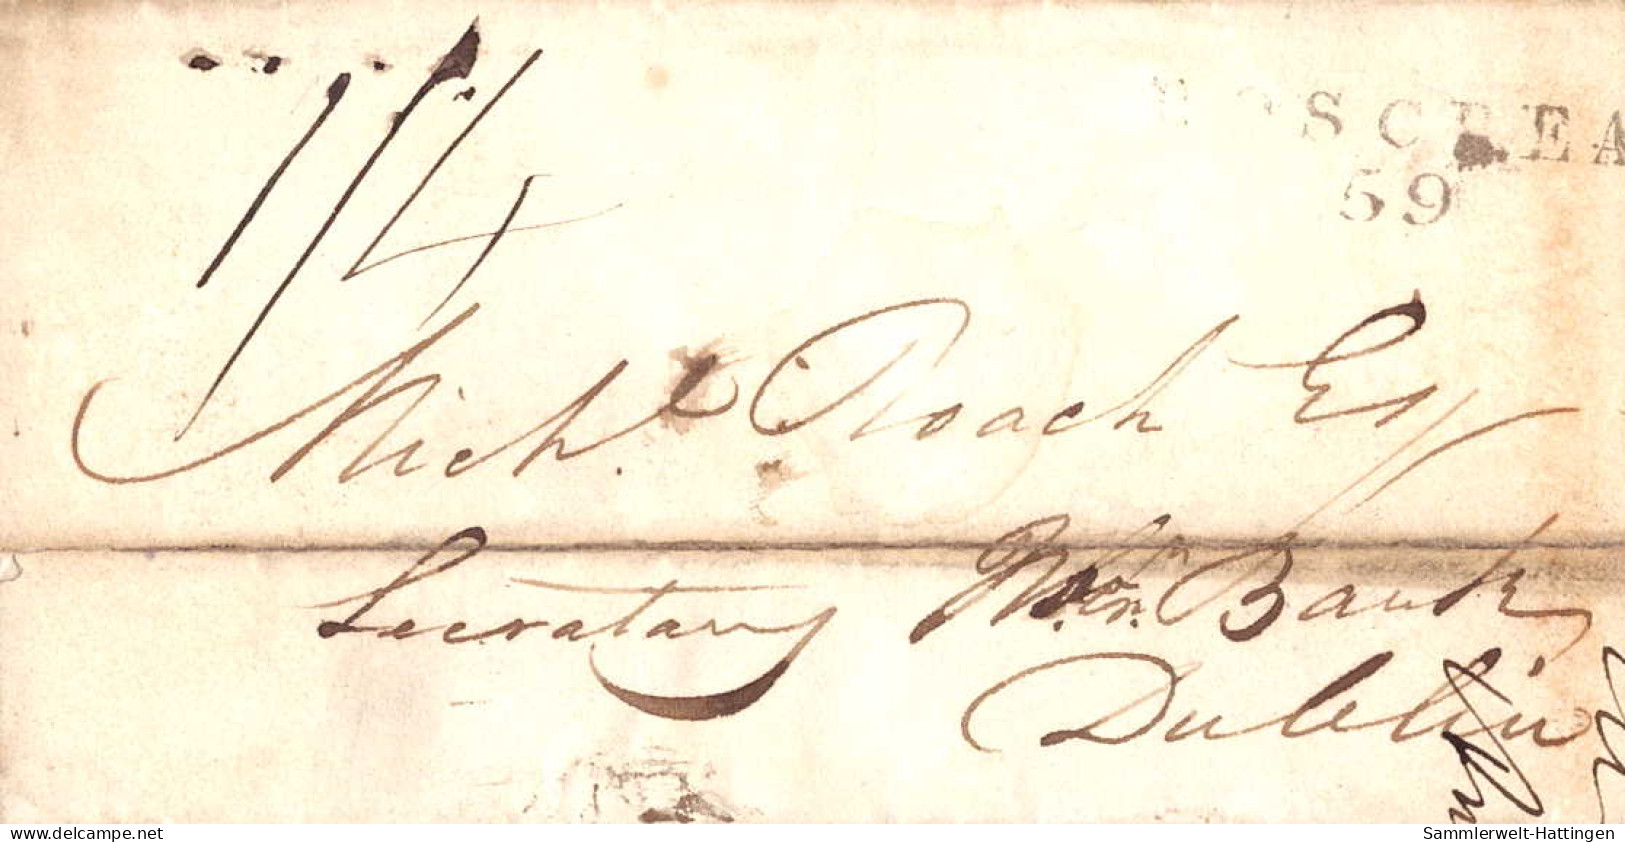 1/4
ROSCREA
59
Mich.l Roach Esq
Secretary Bank
Dublin
www.delcampe.net
Sammlerwelt-Hattingen